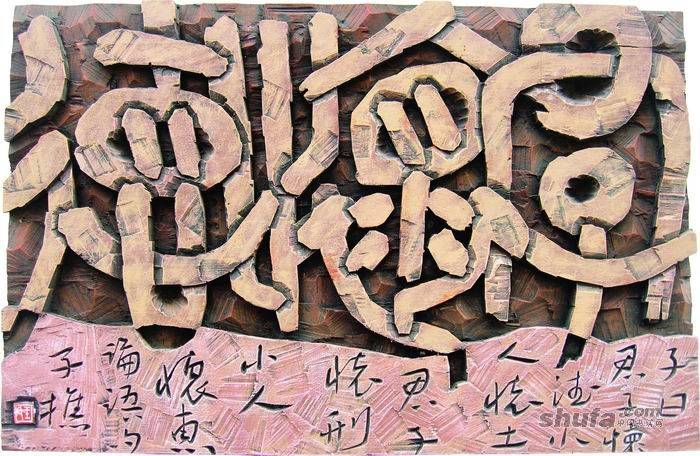 君懷德
子曰
君子懷
德小
人懷土
君子
懷刑
小人
懷惠
論語句
子樵
shufa.com